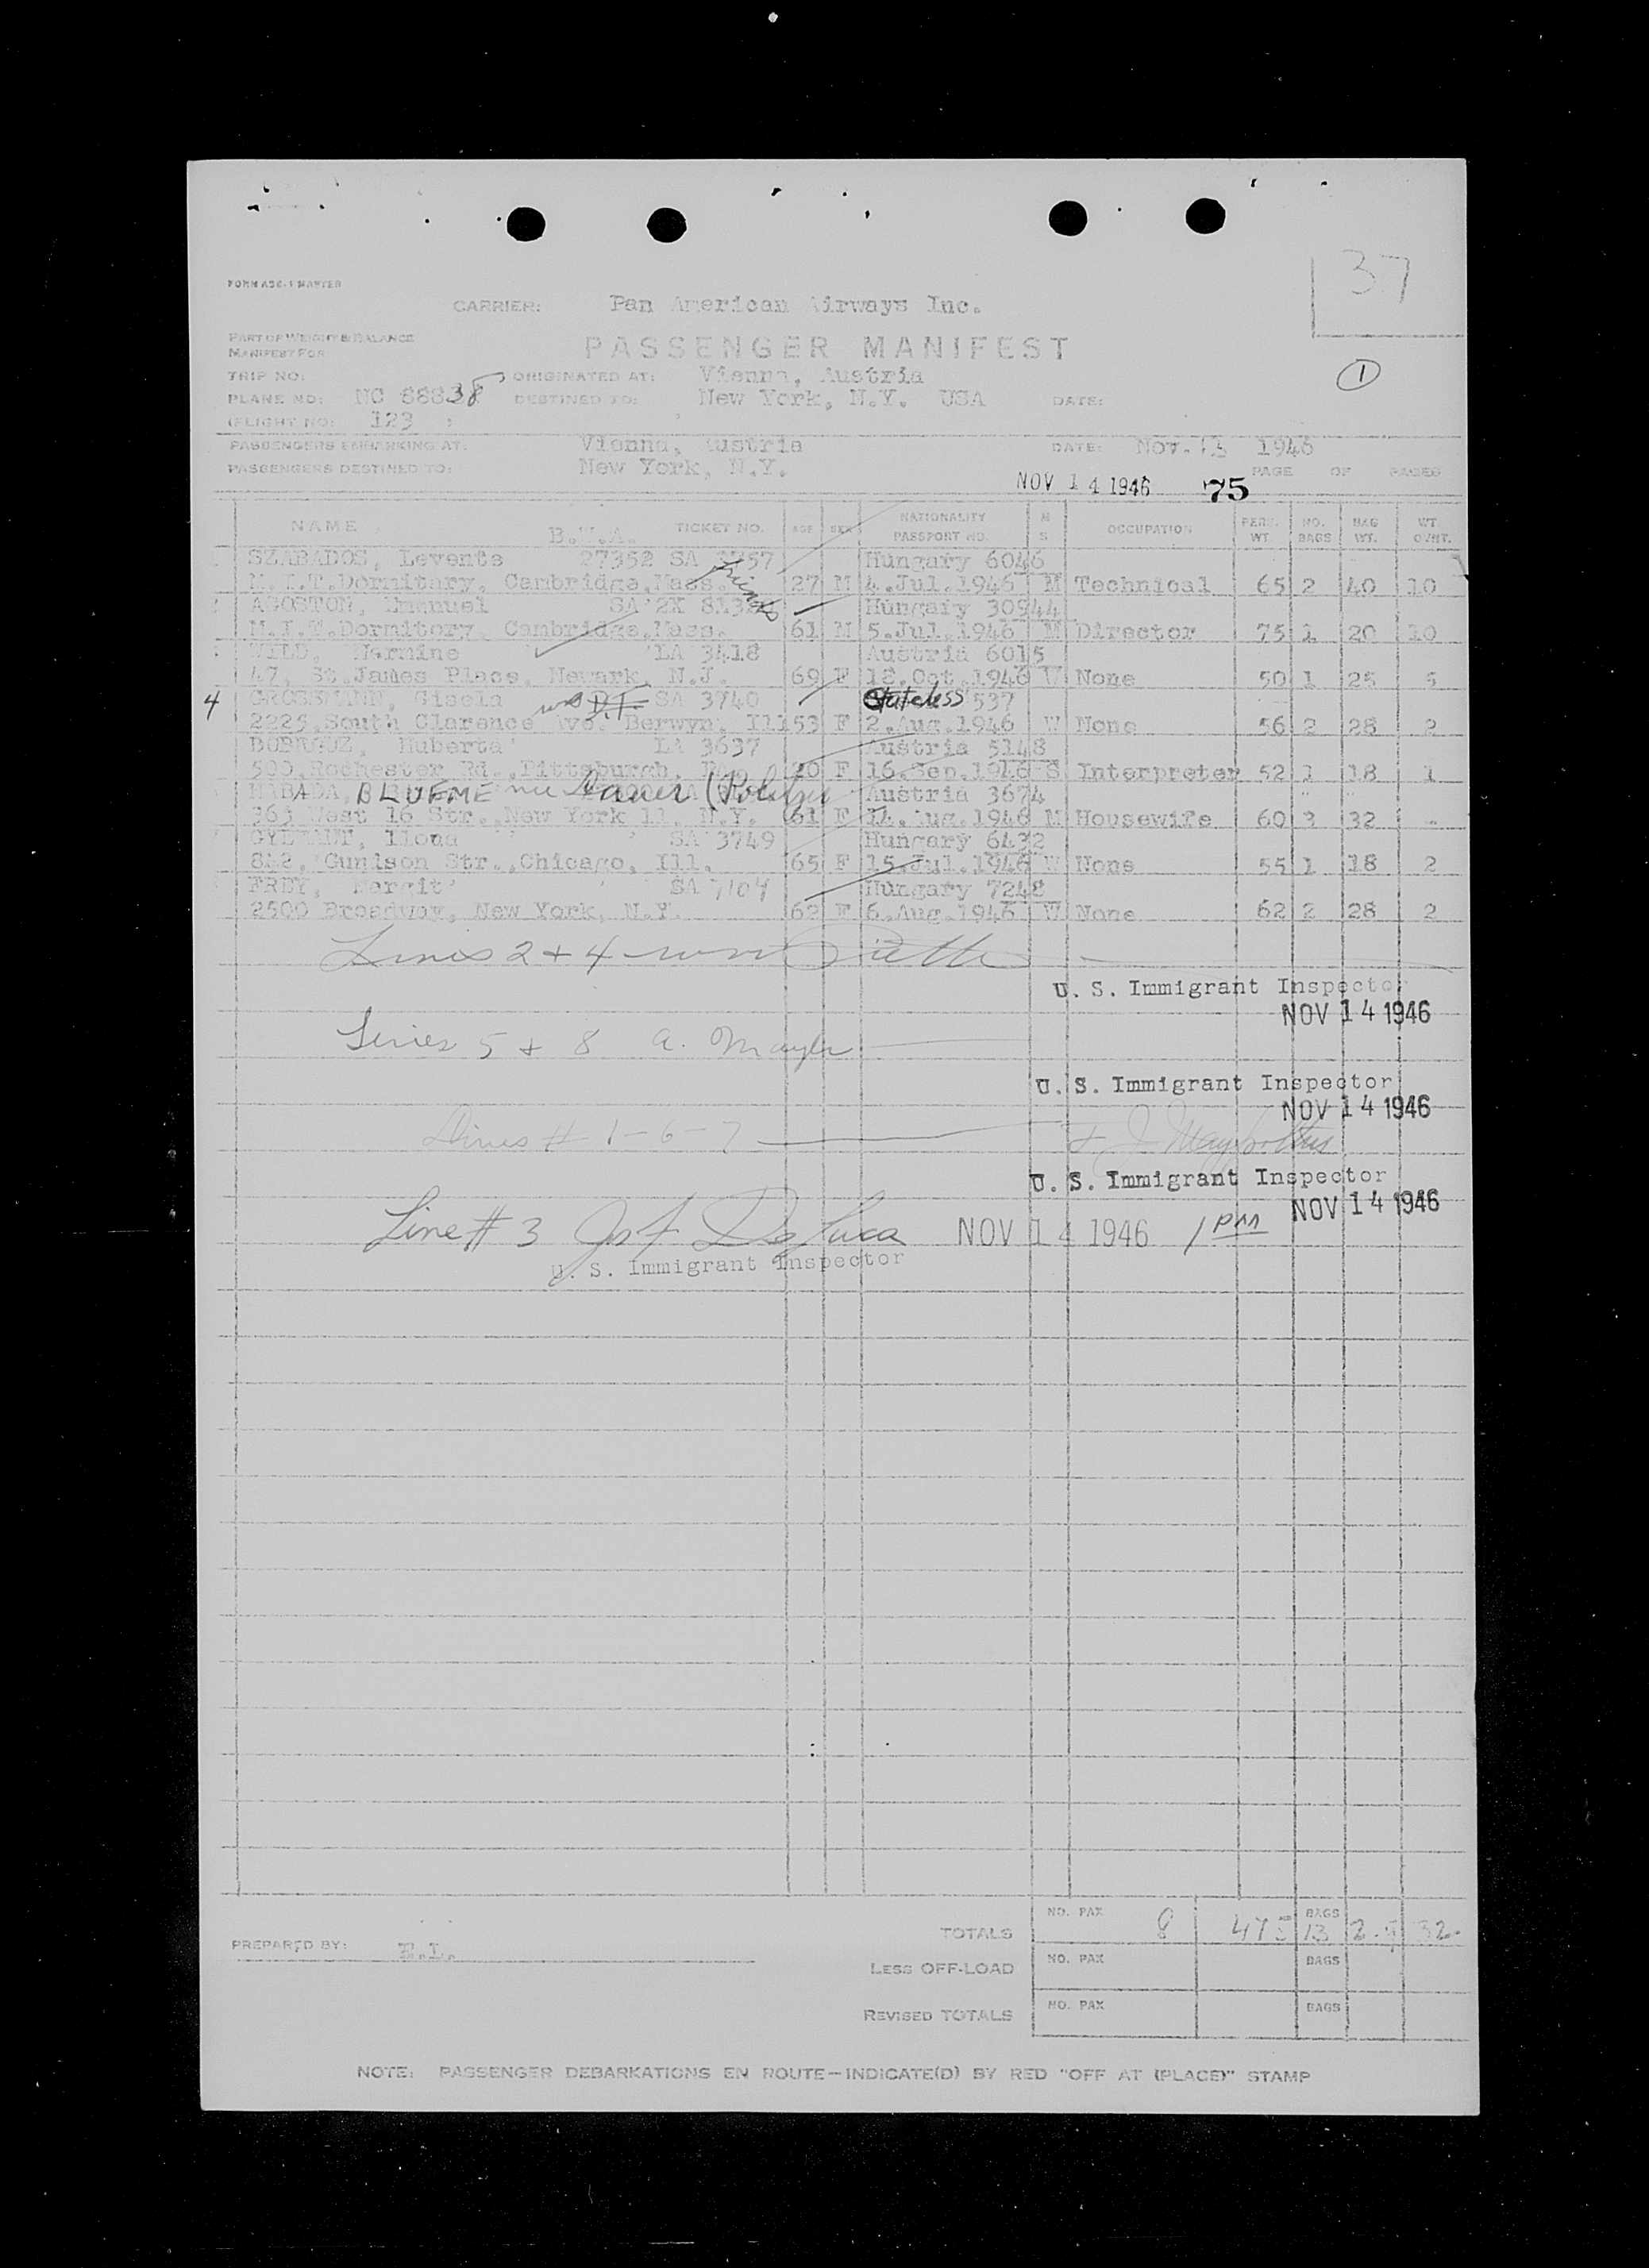 37
FORM ASE-1 MASTER
CARRIER: Pan American Airways Inc.
PART OF WEIGHT & BALANCE
MANIFEST FOR
PASSENGER MANIFEST
1
TRIP NO: ORIGINATED AT: Vienna, Austria
PLANE NO: NC 88838 DESTINED TO: New York, N.Y. USA DATE:
(FLIGHT NO: 123 )
PASSENGERS EMBARKING AT: Vienna, Austria DATE: Nov. 13 1946
PASSENGERS DESTINED TO: New York, N.Y. PAGE OF PAGES
NOV 14 1946 75
NAME TICKET NO. AGE SEX NATIONALITY PASSPORT NO. M S OCCUPATION PERS. WT. NO. BAGS BAG WT. WT.
SZABADOS, Levente 27352 SA Hungary 6046
M.I.T.Dormitory, Cambridge,Mass. 27 M 4.Jul.1946 M Technical 65 2 40 10
AGOSTON, Emanuel SA 2X Hungary 30944
M.I.T.Dormitory, Cambridge,Mass. 61 M 5.Jul.1946 M Director 75 1 20 10
WILD, Hermine LA 3418 Austria 6015
47, St.James Place, Newark, N.J. 69 F 18.Oct.1946 W None 50 1 25 5
4 GROSSMANN, Gisela SA 3740 Stateless 537
2225,South Clarence Ave. Berwyn, Ill 53 F 2.Aug.1946 W None 56 2 28 2
Huberta LA 3637 Austria 5148
500,Rochester Rd.,Pittsburgh, 20 F 16.Sep.1946 S Interpreter 52 1 18 1
BLUEME Austria 3674
363 West 16 Str.,New York 11, N.Y. 61 F 14.Aug.1946 M Housewife 60 3 32 -
Ilona SA 3749 Hungary 6432
Str.,Chicago, Ill. 65 F 15.Jul.1946 W None 55 1 18 2
FREY, Margit SA 7104 Hungary 7248
2500 Broadway, New York, N.Y. 62 F 6.Aug.1946 W None 62 2 28 2
Lines 2 + 4
U. S. Immigrant Inspector
NOV 14 1946
Lines 5 + 8 a.
U. S. Immigrant Inspector
NOV 14 1946
Lines # 1-6-7
U. S. Immigrant Inspector
NOV 14 1946
Line # 3 Jos F De Luca NOV 14 1946 1 PM
U. S. Immigrant Inspector
TOTALS NO. PAX 8 475 BAGS 13 32
PREPARED BY: E.L.
LESS OFF-LOAD NO. PAX BAGS
REVISED TOTALS NO. PAX BAGS
NOTE: PASSENGER DEBARKATIONS EN ROUTE—INDICATE(D) BY RED "OFF AT (PLACE)" STAMP